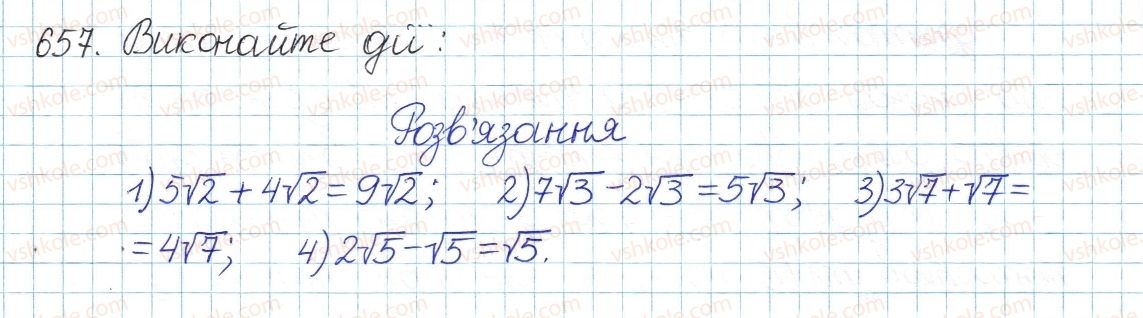 657. Виконайте дії:
Розв'язання
1) 5√2 + 4√2 = 9√2; 2) 7√3 - 2√3 = 5√3; 3) 3√7 + √7 =
= 4√7; 4) 2√5 - √5 = √5.